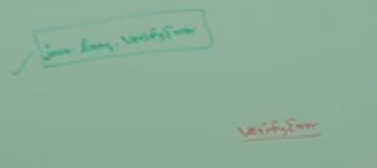 java.lang.VerifyError
VerifyError